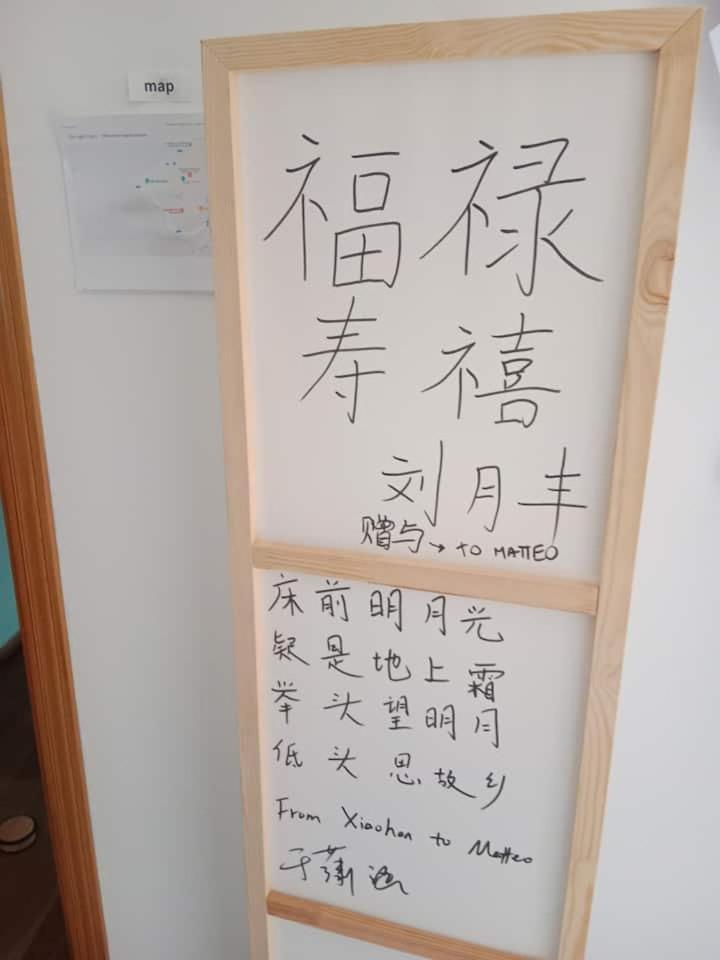 map
福 禄
寿 禧
刘月丰
赠与 → TO MATTEO
床前明月光
疑是地上霜
举头望明月
低头思故乡
From Xiaohan to Matteo